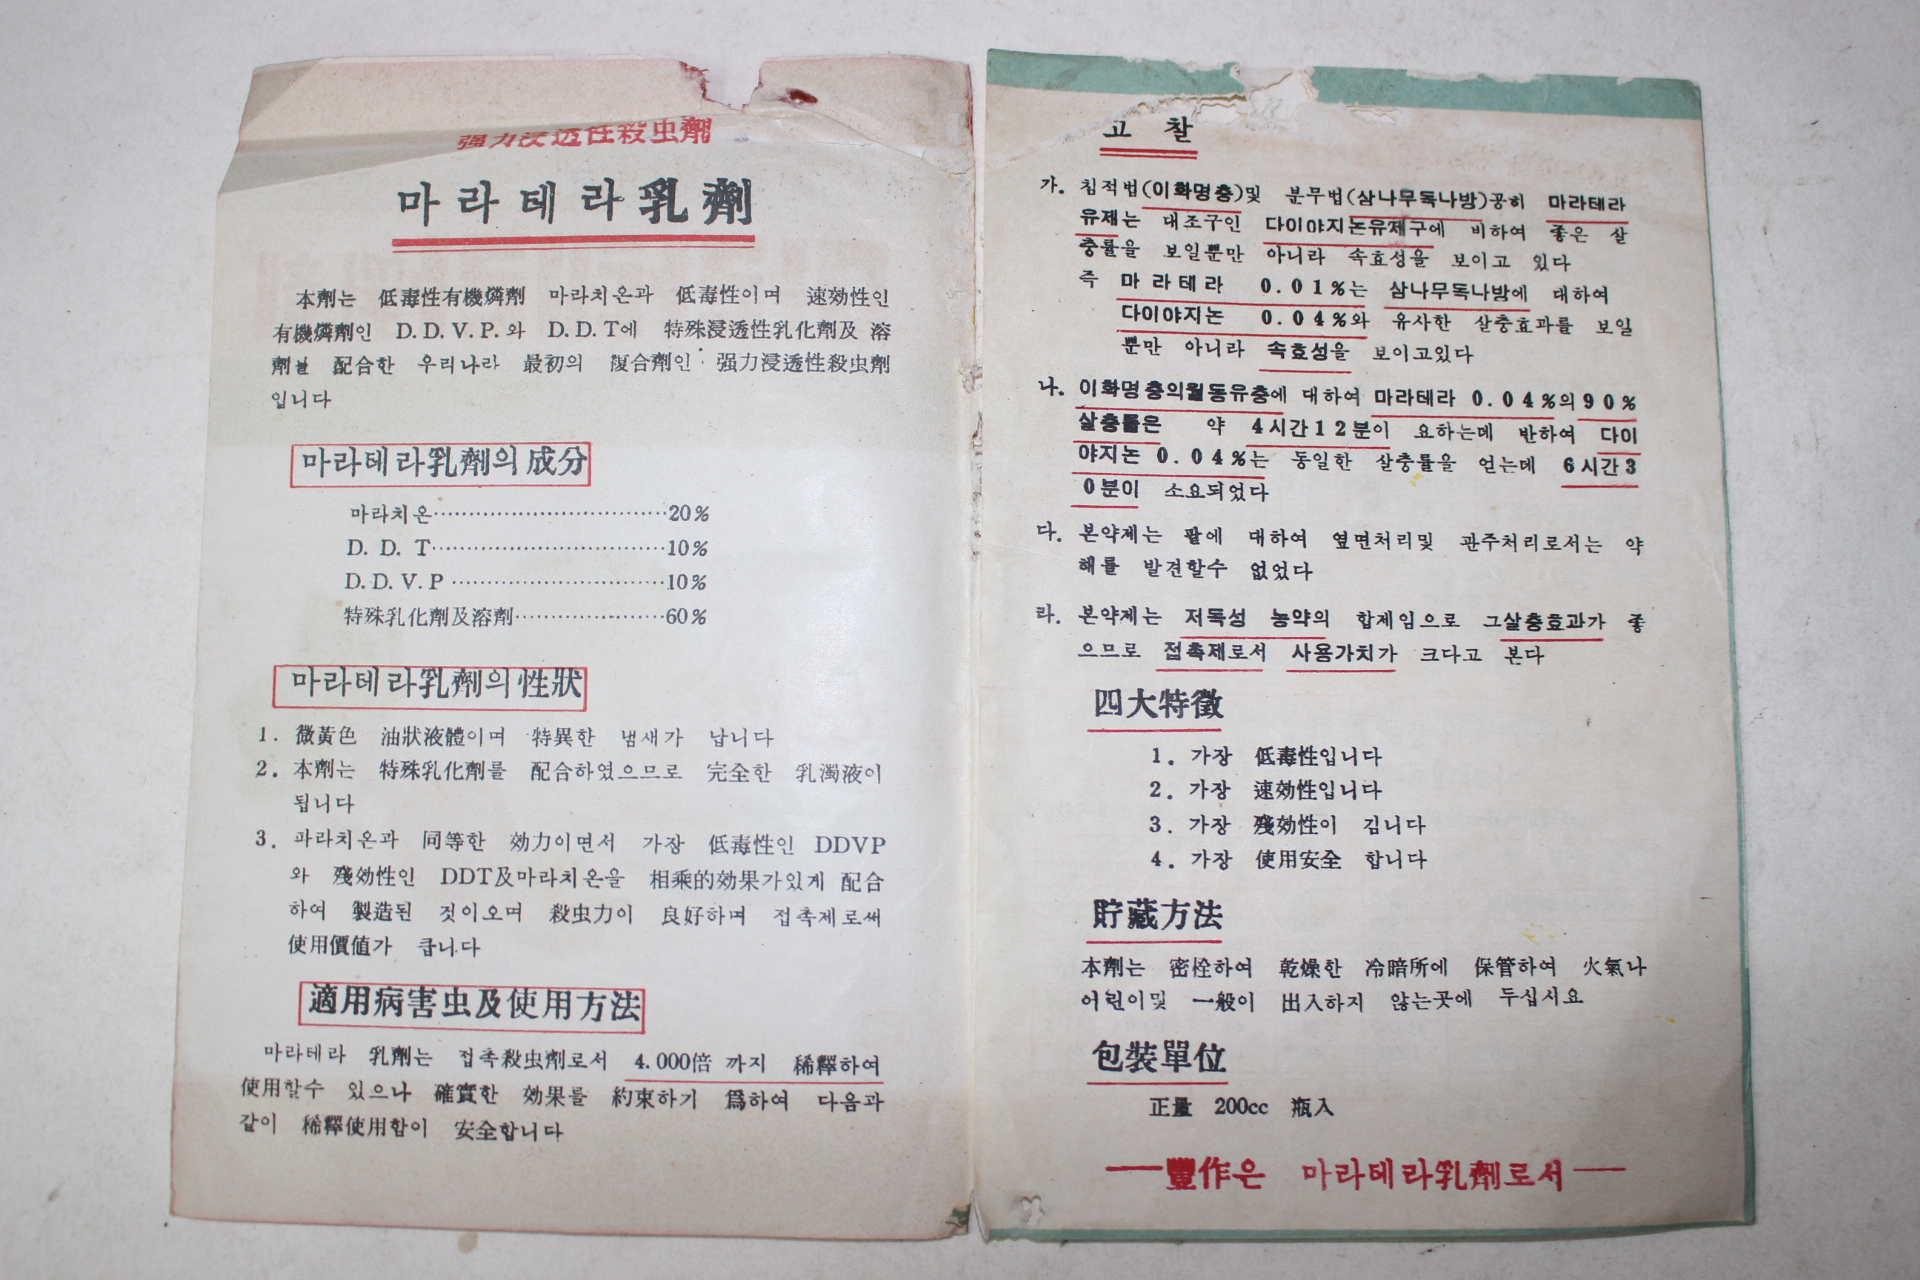 强力浸透性殺虫劑
마라테라乳劑
本劑는 低毒性有機燐劑 마라치온과 低毒性이며 速効性인
有機燐劑인 D.D.V.P.와 D.D.T에 特殊浸透性乳化劑及 溶
劑를 配合한 우리나라 最初의 復合劑인 强力浸透性殺虫劑
입니다
마라테라乳劑의 成分
마라치온……………………………20%
D. D. T……………………………10%
D. D. V. P…………………………10%
特殊乳化劑及溶劑…………………60%
마라테라乳劑의 性狀
1. 微黃色 油狀液體이며 特異한 냄새가 납니다
2. 本劑는 特殊乳化劑를 配合하였으므로 完全한 乳濁液이
됩니다
3. 파라치온과 同等한 効力이면서 가장 低毒性인 DDVP
와 殘効性인 DDT及마라치온을 相乘的効果가있게 配合
하여 製造된 것이오며 殺虫力이 良好하며 접촉제로써
使用價値가 큽니다
適用病害虫及使用方法
마라테라 乳劑는 접촉殺虫劑로서 4.000倍 까지 稀釋하여
使用할수 있으나 確實한 効果를 約束하기 爲하여 다음과
같이 稀釋使用함이 安全합니다
고 찰
가. 침적법(이화명충)및 분무법(삼나무독나방)공히 마라테라
유제는 대조구인 다이야지논유제구에 비하여 좋은 살
충률을 보일뿐만 아니라 속효성을 보이고 있다
즉 마라테라 0.01%는 삼나무독나방에 대하여
다이야지논 0.04%와 유사한 살충효과를 보일
뿐만 아니라 속효성을 보이고있다
나. 이화명충의월동유충에 대하여 마라테라 0.04%의90%
살충률은 약 4시간12분이 요하는데 반하여 다이
야지논 0.04%는 동일한 살충률을 얻는데 6시간3
0분이 소요되었다
다. 본약제는 팥에 대하여 엽면처리및 관주처리로서는 약
해를 발견할수 없었다
라. 본약제는 저독성 농약의 합제임으로 그살충효과가 좋
으므로 접촉제로서 사용가치가 크다고 본다
四大特徵
1. 가장 低毒性입니다
2. 가장 速効性입니다
3. 가장 殘効性이 깁니다
4. 가장 使用安全 합니다
貯藏方法
本劑는 密栓하여 乾燥한 冷暗所에 保管하여 火氣나
어린이및 一般이 出入하지 않는곳에 두십시요
包裝單位
正量 200cc 瓶入
—豐作은 마라테라乳劑로서—